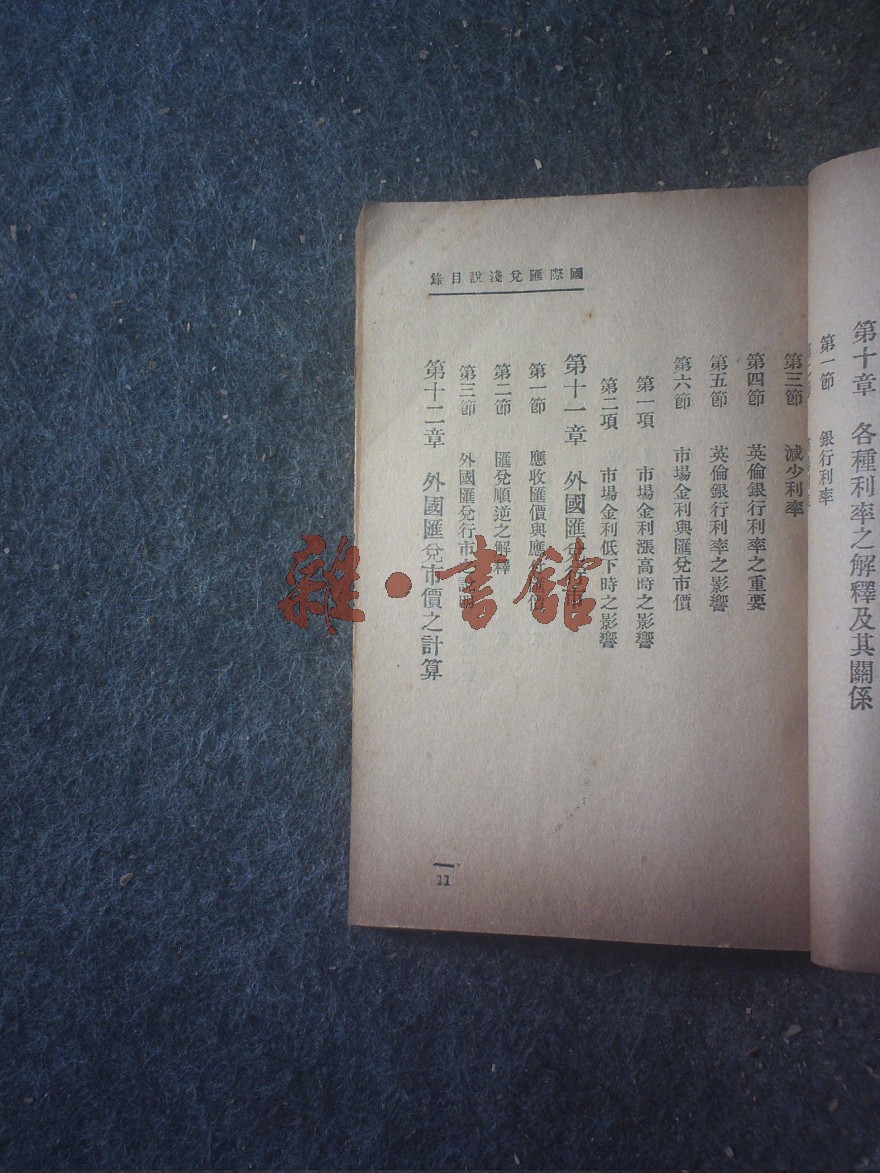 國際匯兌淺說目錄
第十章　各種利率之解釋及其關係
第一節　銀行利率
第三節　減少利率
第四節　英倫銀行利率之重要
第五節　英倫銀行利率之影響
第六節　市場金利與匯兌市價
第一項　市場金利漲高時之影響
第二項　市場金利低下時之影響
第十一章　外國匯兌行市
第一節　應收匯價與應付匯價
第二節　匯兌順逆之解釋
第三節　外國匯兌行市之說明
第十二章　外國匯兌市價之計算
11
雜·書館